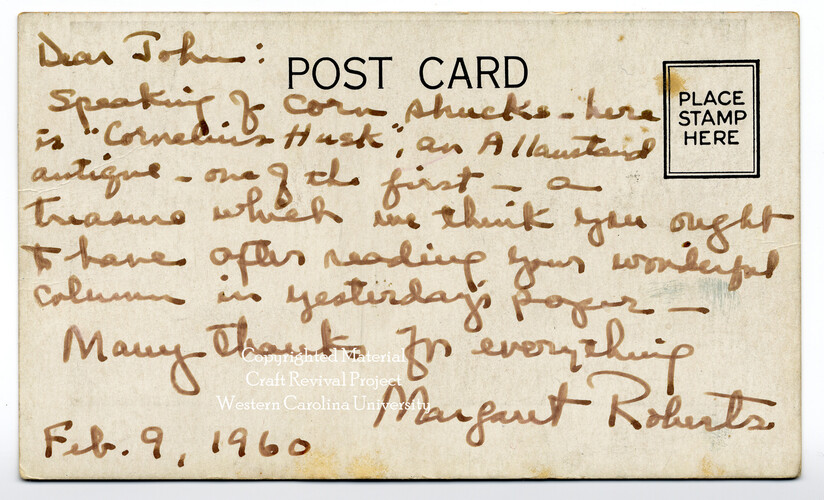 Dear John:
POST CARD
PLACE
STAMP
HERE
Speaking of corn shucks - here
is "Cornelius Husk", an Allanstand
antique - one of the first - a
treasure which we think you ought
to have after reading your wonderful
column in yesterday's paper -
Many thanks for everything
Margaret Roberts
Feb. 9, 1960
Copyrighted Material
Craft Revival Project
Western Carolina University